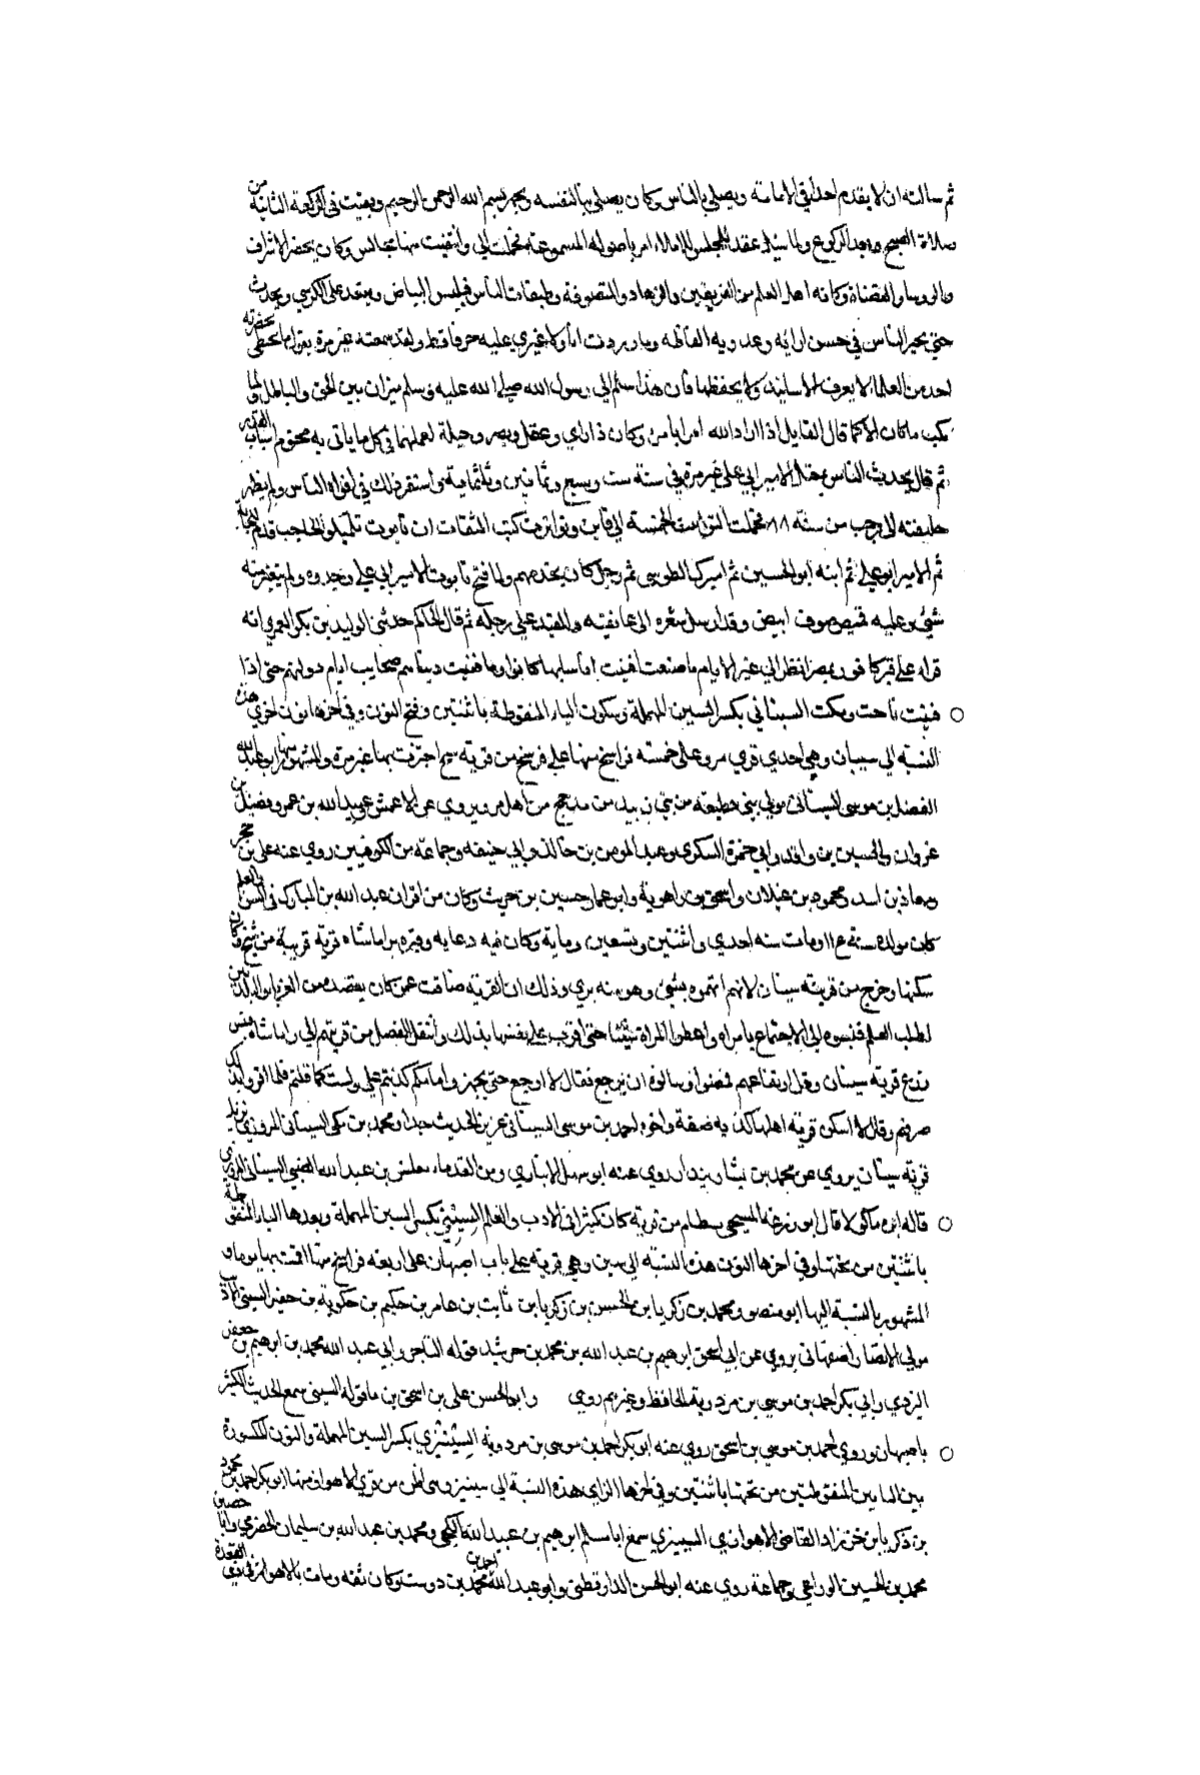 ثم سالته ان لا يقدم احدا في الامامة ويصلي بالناس وكان يصلي بنا بنفسه ويجهر ببسم الله الرحمن الرحيم ويقنت في الركعة الثانية من
صلاة الصبح بعد الركوع ولما عقد المجلس للاملاء امر باصوله المسموعة فحملت الي وانتقيت منها مجالس وكان يحضر الاشراف
والروسا والقضاة وكافة اهل العلم من الفريقين والزهاد والمتصوفة وطبقات الناس فيلبس البياض ويقعد على الكرسي ويحدث
حتى يحير الناس في حسن ادائه وعذوبة الفاظه وما رددت انا ولا غيري عليه حرفا قط ولقد سمعته غير مرة يقول ما يخطى بحضرته
احد من العلما لا يعرف الاسانيد ولا يحفظها فان هذا سلم الي رسول الله صلي الله عليه وسلم ميزان بين الحق والباطل ولما
نكب ما كان الا كما قال القايل اذا اراد الله امرا بامرئ وكان ذا راي وعقل وبصر وحيلة يعملها في كل ما ياتي به محتوم اسباب القدر
ثم قال يحدث الناس بقتل الامير ابي علي غير مرة في سنة ست وسبع وثمانين وثلثماية واستقر ذلك في افواه الناس ولم يظهر
حقيقته الي رجب من سنة ٨٨ فحملت التوابيت الخمسة الي قاين وتواترت كتب الثقات ان تابوت ايلمنكو الحاجب قدم
ثم الامير ابو علي ثم ابنه ابو الحسين ثم اميرك الطوسي ثم رجل كان يخدمهم ولما فتح تابوت الامير ابي علي وجدوه ولم يتغير منه
شئ وعليه قميص صوف ابيض وقد ارسل شعره الى عاتقيه والقيد علي رجله ثم قال الحاكم حدثني الوليد بن بكر العمري انه
قراه على قبر كافور بمصر انظر الي غير الايام ما صنعت افنيت اناسا بها كانوا وما فنيت دنياهم ضحكت ايام دولتهم حتى اذا
فنيت ناحت وبكت السيناني بكسر السين المهملة وسكون الياء المنقوطة باثنتين وفتح النون وفي اخرها نون اخري هذه
النسبة الي سينان وهي احدي قري مرو على خمسة فراسخ منها على فرسخ من قرية سنج اجتزت بها غير مرة والمشهور منها ابو عبد الله
الفضل بن موسى السيناني مولي بني قطيعة من بني زبيد من مذحج من اهل مرو يروي عن الاعمش وعبيد الله بن عمر وفضيل بن
غزوان والحسين بن واقد وابي حمزة السكري وعبد المومن بن خالد وابي حنيفة وجماعة من الكوفيين روي عنه علي بن حجر
ومعاذ بن اسد ومحمود بن غيلان واسحق بن راهوية وابو عمار حسين بن حريث وكان من اقران عبد الله بن المبارك في السن والعلم
كان مولده سنة ١١٤ ومات سنة احدي واثنتين وتسعين وماية وكان فيه دعابة وقبره براماشاه قرية قريبة من كان
سكنها وخرج من قرية سينان لانهم اتهموه بشئ وهو منه بري وذلك ان القرية ضاقت عمن كان يقصده من الغربا والطالبين
لطلب العلم فنسبوه الي الاجتماع بامراه واعطوا المراة شيئا حتى اقرت على نفسها بذلك وانتقل الفضل من قريتهم الي راماشاه فيبس
زرع قرية سينان وقل ارتفاعهم فمضوا وسالوه ان يرجع فقال لا ارجع حتى تقروا انكم كذبتم علي ولست كما قلتم فلما اقروا بذلك
صرفهم وقال لا اسكن قرية اهلها كذبة واخوه احمد بن موسى السيناني عزيز الحديث جدا ومحمد بن مكي السيناني المروزي يزيد
قرية سينان يروي عن محمد بن بشار بندار روي عنه ابو سهل الانباري ومن القدماء مغلس بن عبد الله الضبي السيناني المروزي
قاله ابن ماكولا قال ابو زرعة المسيحي كان كثير الادب والعلم السيني بكسر السين المهملة وبعدها الياء المنقوطة
باثنتين من تحتها وفي اخرها النون هذه النسبة الي سين وهي قرية على باب اصبهان علي اربعة فراسخ منها اقمت بها يوما و
المشهور بالنسبة اليها ابو منصور محمد بن زكريا بن الحسن بن زكريا بن ثابت بن عامر بن حكيم بن حكوية بن السيني الاديب
مولي الانصار اصبهاني يروي عن ابي اسحق ابراهيم بن عبد الله بن محمد بن خرشيد قوله التاجر وابي عبد الله محمد بن ابرهيم بن جعفر
اليزدي وابي بكر احمد بن موسي بن مردوية الحافظ وغيرهم روي وابو الحسن علي بن اسحق بن ماقوله السيني سمع الحديث الكثير
باصبهان وروي احمد بن موسي بن اسحق روي عنه ابو بكر احمد بن موسى بن مردوية السينيزي بكسر السين المهملة والنون المكسورة
بين اليايين المنقوطتين من تحتها باثنتين وفي اخرها الزاي هذه النسبة الي سينيز وهي اظن من قري الاهواز منها ابو بكر احمد بن محمود
بن زكريا بن خرزاد القاضي الاهوازي السينيزي سمع ابا مسلم ابراهيم بن عبد الله الكجي ومحمد بن عبد الله بن سليمان الحضرمي وابا حصين
محمد بن الحسين الوادعي وجماعة روي عنه ابو الحسن الدارقطني وابو عبد الله احمد بن محمد بن دوست وكان ثقة ومات بالاهواز في ذي القعدة